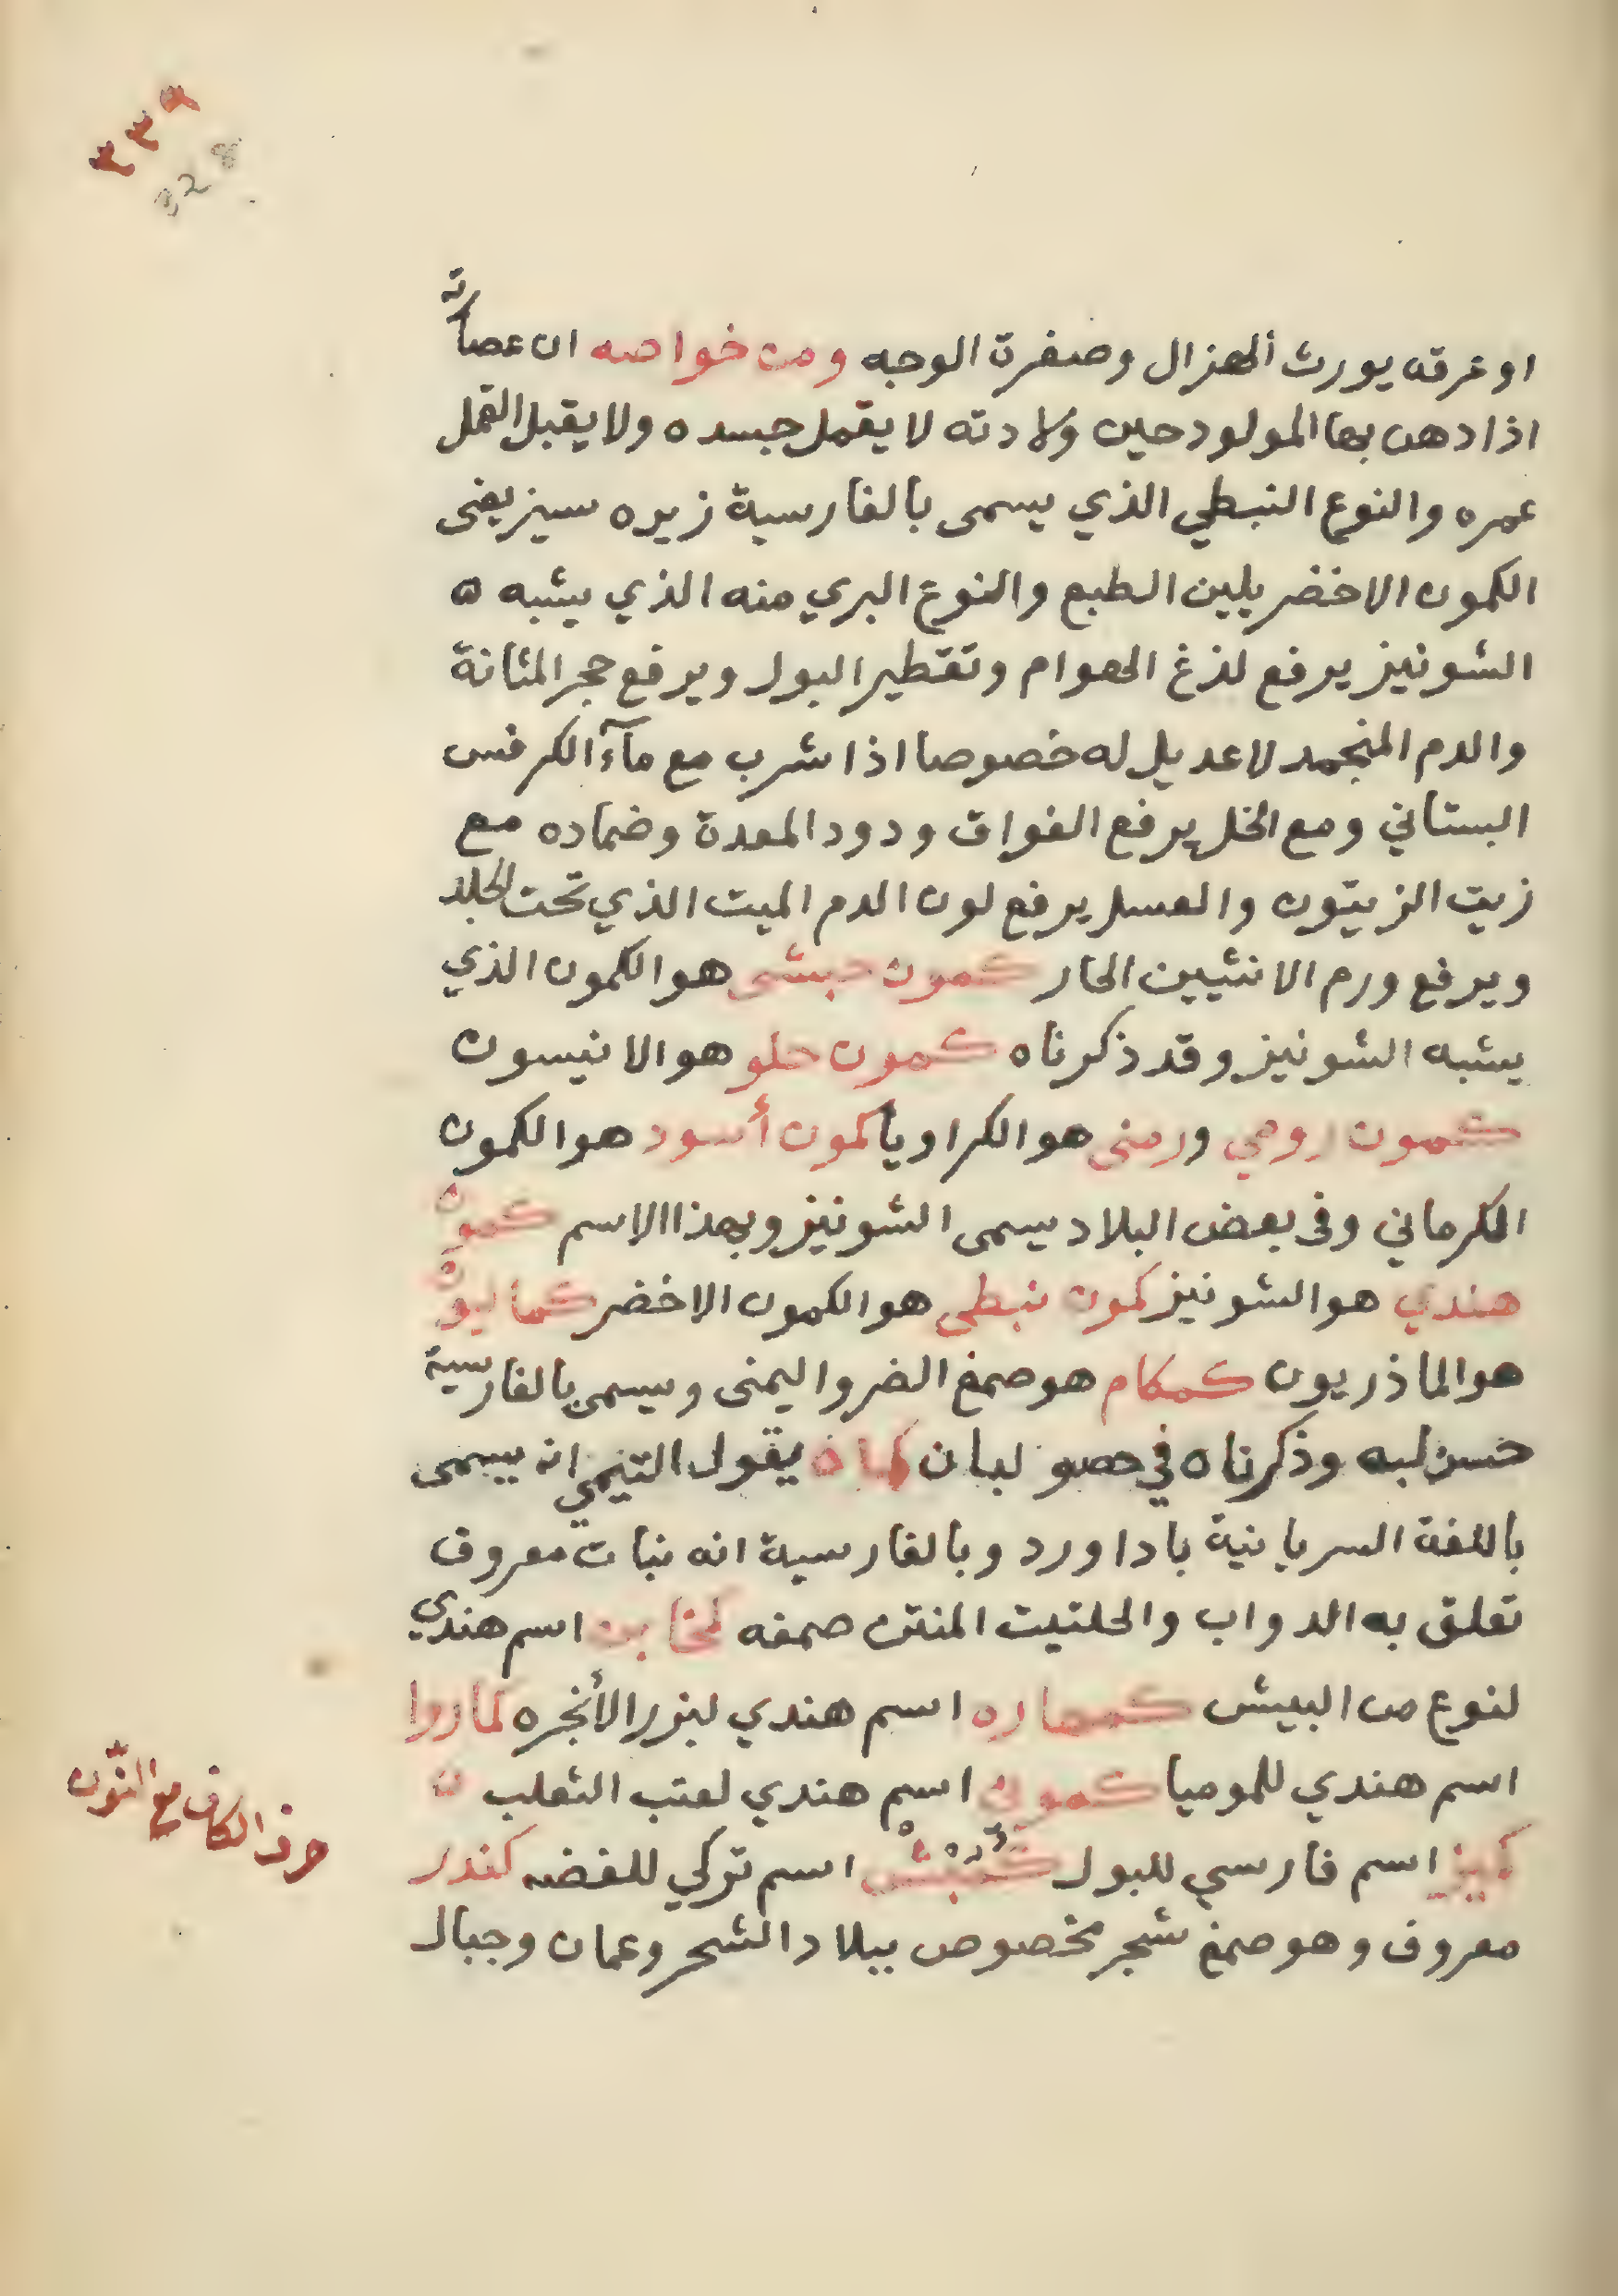 ٣٣٩
328
او عرقه يورث الهزال وصفرة الوجه ومن خواصه ان عصارته
اذا دهن بها المولود حين ولادته لا يقمل جسده ولا يقبل القمل
عمره والنوع النبطي الذي يسمى بالفارسية زيره سبز يعنى
الكمون الاخضر يلين الطبع والنوع البري منه الذي يشبه ه
الشونيز يرفع لذغ الهوام وتقطير البول ويرفع حجر المثانة
والدم المنجمد لا عديل له خصوصا اذا شرب مع مآء الكرفس
البستاني ومع الخل يرفع الفواق ودود المعدة وضماده مع
زيت الزيتون والعسل يرفع لون الدم الميت الذي تحت الجلد
ويرفع ورم الانثيين الحار كمون حبشى هو الكمون الذي
يشبه الشونيز وقد ذكرناه كمون حلو هو الانيسون
كمون رومي ورمنى هو الكراويا كمون أسود هو الكمون
الكرماني وفى بعض البلاد يسمى الشونيز وبهذا الاسم كمون
هندي هو الشونيز كمون نبطى هو الكمون الاخضر كماليون
هو الماذريون كمكام هو صمغ الضرو اليمنى ويسمى بالفارسية
حسن لبه وذكرناه في حصو لبان كماه يقول التيمي انه يسمى
باللغة السريانية باداورد وبالفارسية انه نبات معروف
تعلق به الدواب والحلتيت المنتن صمغه اسم هندي
لنوع من البيش اسم هندي لبزر الأنجره كماروا
اسم هندي للموميا كمونى اسم هندي لعنب الثعلب ن
كميز اسم فارسي للبول اسم توركي للفضه كندر
معروف وهو صمغ شجر مخصوص ببلاد الشحر وعمان وجبال
حرف الكاف مع النّون